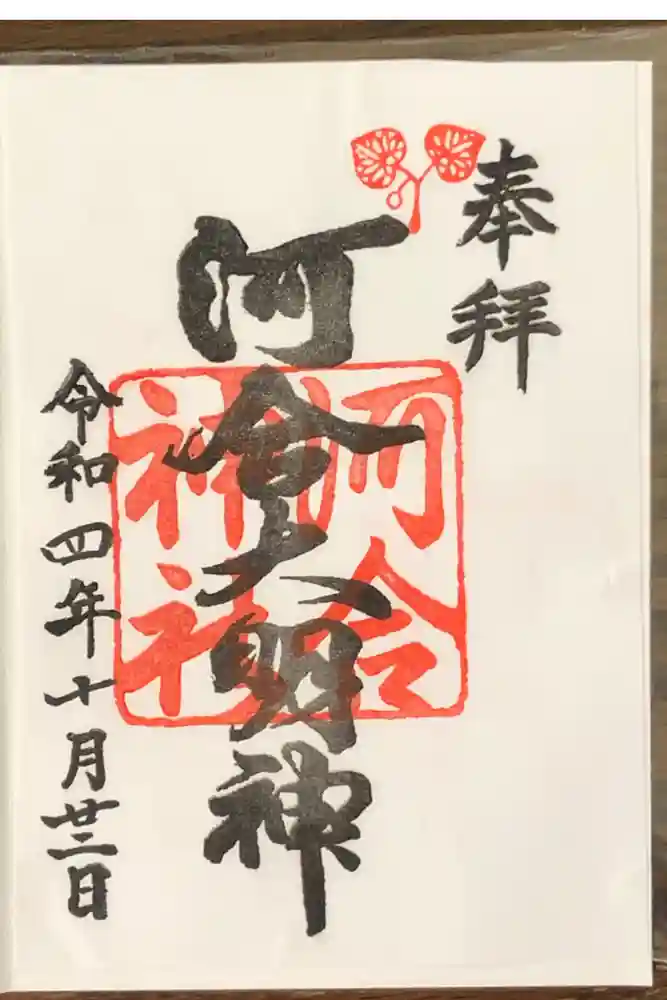 奉拝
河合大明神
河合
神社
令和四年十月廿二日